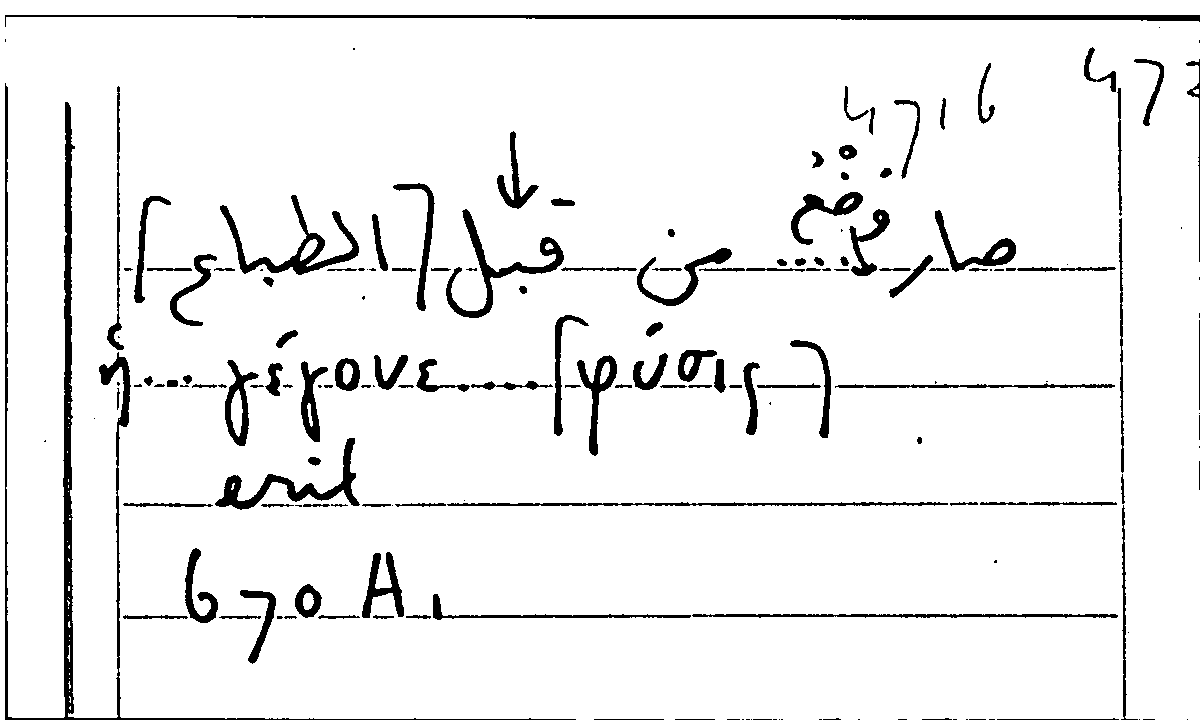 4716 47
وضع
صار ..... من قبل ⌈الطباع⌉
ἡ ... γέγονε ..... ⌈φύσις⌉
erit
670 A 1